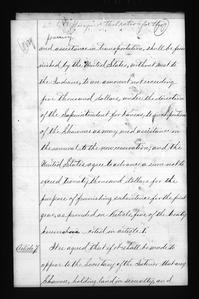 and assistance in transportation, shall be fur-
nished by the United States, without cost to
the Indians, to an amount not exceeding
five thousand dollars, under the direction
of the Superintendent for Kansas, to such portion
of the Shawnees as may need assistance in
the removal to the new reservation; and the
United States agree to advance a sum not to
exceed twenty thousand dollars for the
purpose of furnishing subsistence for the first
year, as provided in Article five of the treaty
cited in article 1.
Article 7. It is agreed that if it shall be made to
appear to the Secretary of the Interior that any
Shawnee, holding land in severalty, and